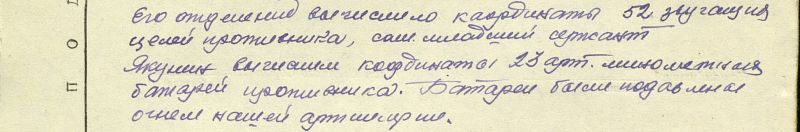 Его отделение вычислило координаты 52 звучащих
целей противника, сам младший сержант
Якунин вычислил координаты 23 арт. минометных
батарей противника. Батареи были подавлены
огнем нашей артиллерии.
П О Д